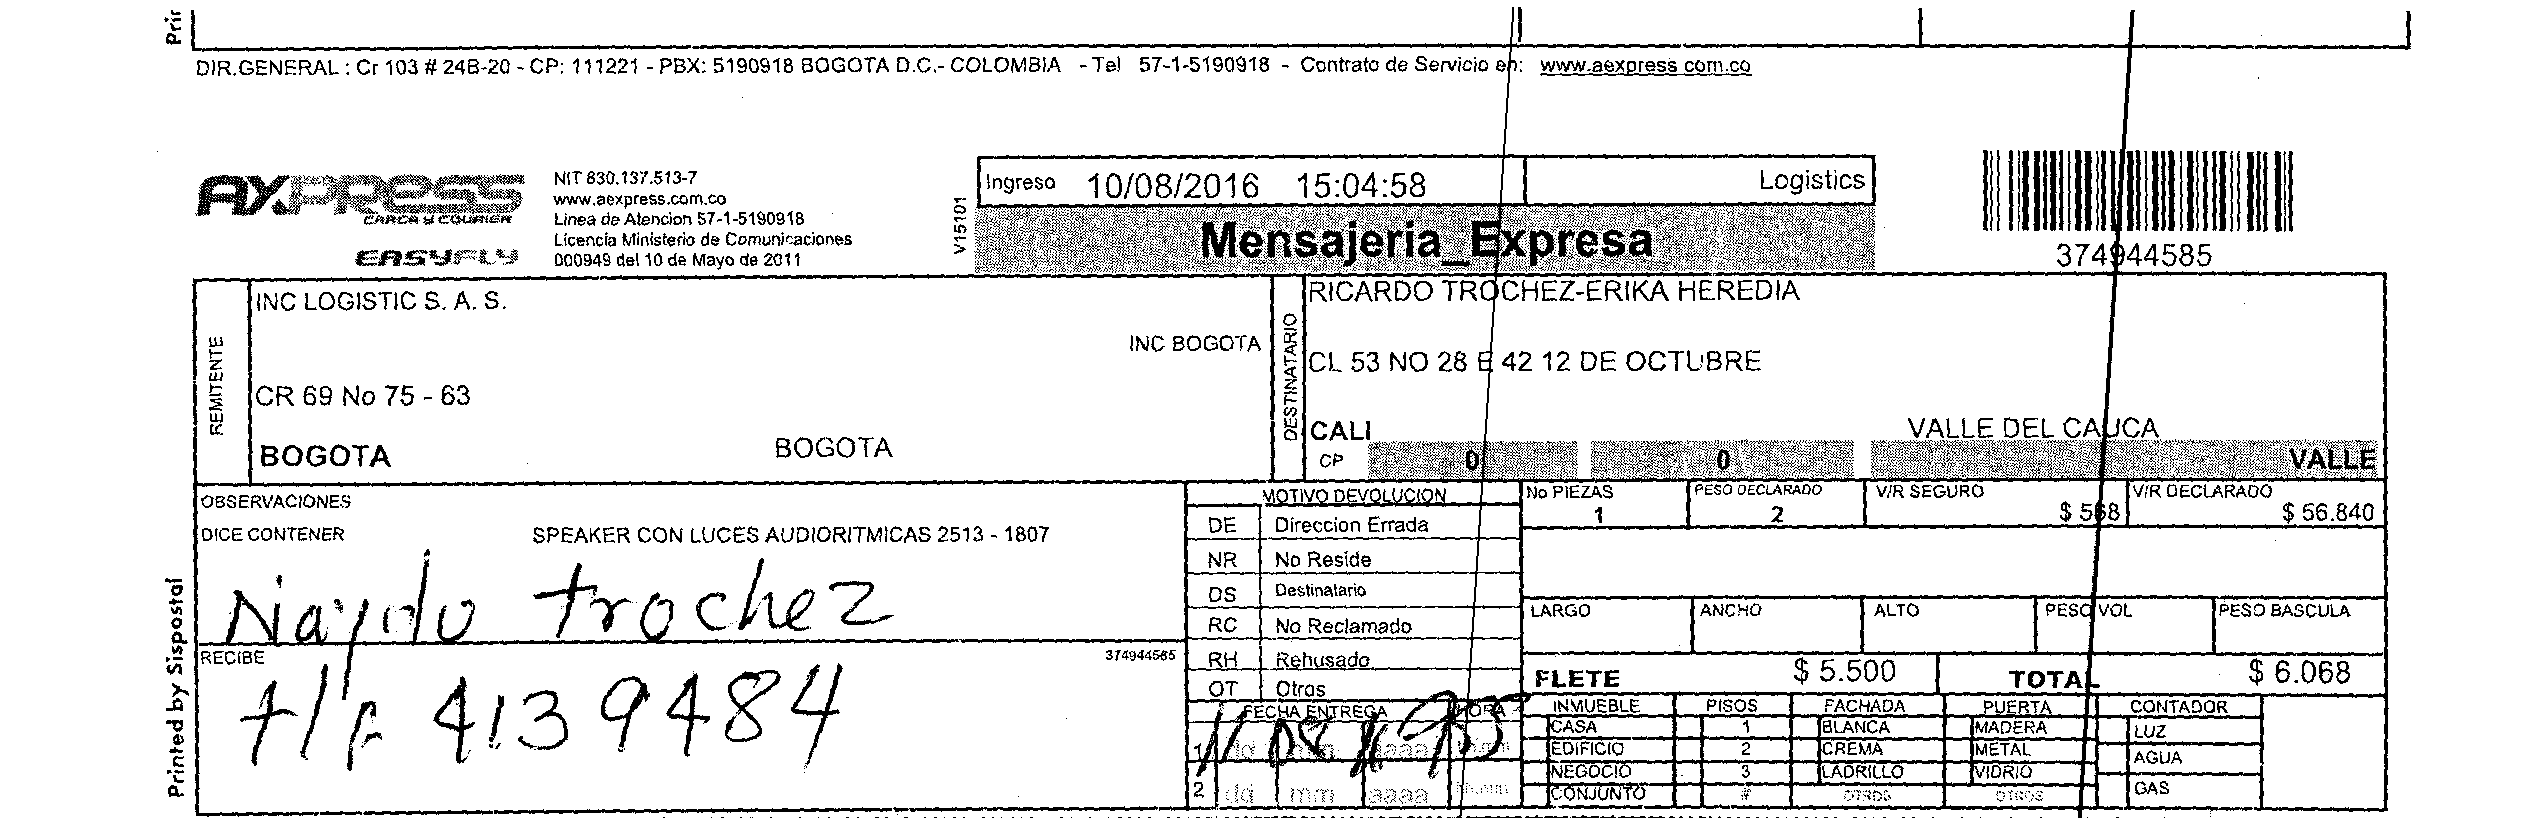 DIR.GENERAL : Cr 103 # 24B-20 - CP: 111221 - PBX: 5190918 BOGOTA D.C.- COLOMBIA - Tel 57-1-5190918 - Contrato de Servicio en: www.aexpress.com.co
AXPRESS
CARGA Y COURIER
EASYFLY
NIT 830.137.513-7
www.aexpress.com.co
Linea de Atencion 57-1-5190918
Licencia Ministerio de Comunicaciones
000949 del 10 de Mayo de 2011
V15101
Ingreso 10/08/2016 15:04:58 Logistics
Mensajeria_Expresa
374944585
REMITENTE
INC LOGISTIC S. A. S.
INC BOGOTA
CR 69 No 75 - 63
BOGOTA BOGOTA
DESTINATARIO
RICARDO TROCHEZ-ERIKA HEREDIA
CL 53 NO 28 E 42 12 DE OCTUBRE
CALI VALLE DEL CAUCA
CP 0 0 VALLE
OBSERVACIONES
DICE CONTENER SPEAKER CON LUCES AUDIORITMICAS 2513 - 1807
trochez
RECIBE 374944585
4139484
Printed by Sispostal
MOTIVO DEVOLUCION
DE Direccion Errada
NR No Reside
DS Destinatario
RC No Reclamado
RH Rehusado
OT Otros
FECHA ENTREGA HORA
1 dd mm aaaa
2 dd mm aaaa
No PIEZAS PESO DECLARADO V/R SEGURO V/R DECLARADO
1 2 $ 568 $ 56.840
LARGO ANCHO ALTO PESO VOL PESO BASCULA
FLETE $ 5.500 TOTAL $ 6.068
INMUEBLE PISOS FACHADA PUERTA CONTADOR
CASA 1 BLANCA MADERA LUZ
EDIFICIO 2 CREMA METAL
NEGOCIO 3 LADRILLO VIDRIO AGUA
CONJUNTO # OTROS OTROS GAS